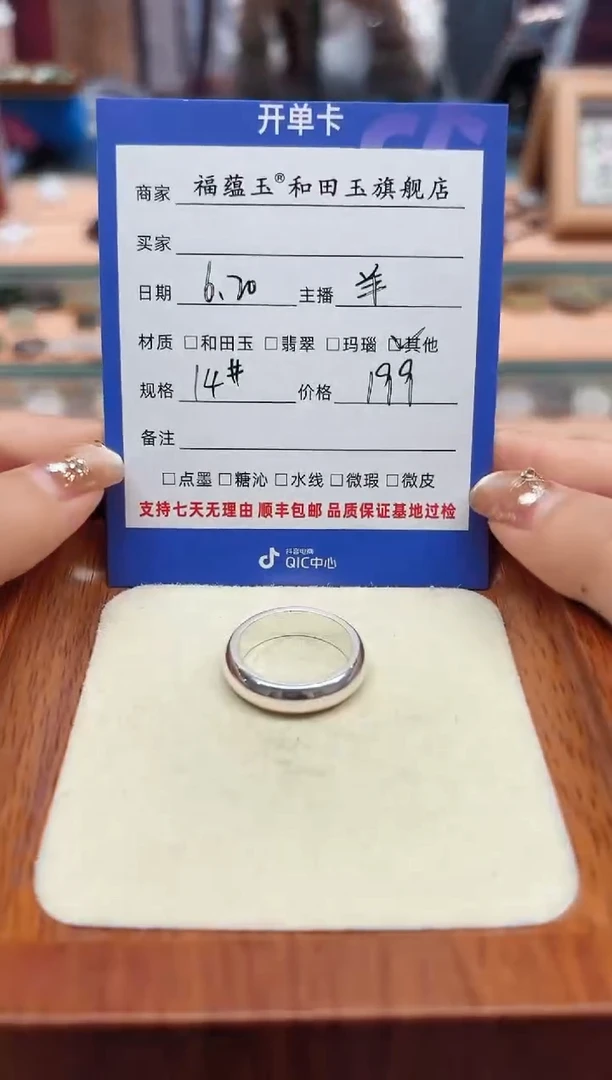 开单卡
商家 福蕴玉®和田玉旗舰店
买家
日期 6.20 主播 羊
材质 □和田玉 □翡翠 □玛瑙 ☑其他
规格 14# 价格 199
备注
□点墨 □糖沁 □水线 □微瑕 □微皮
支持七天无理由 顺丰包邮 品质保证基地过检
抖音电商
QIC中心